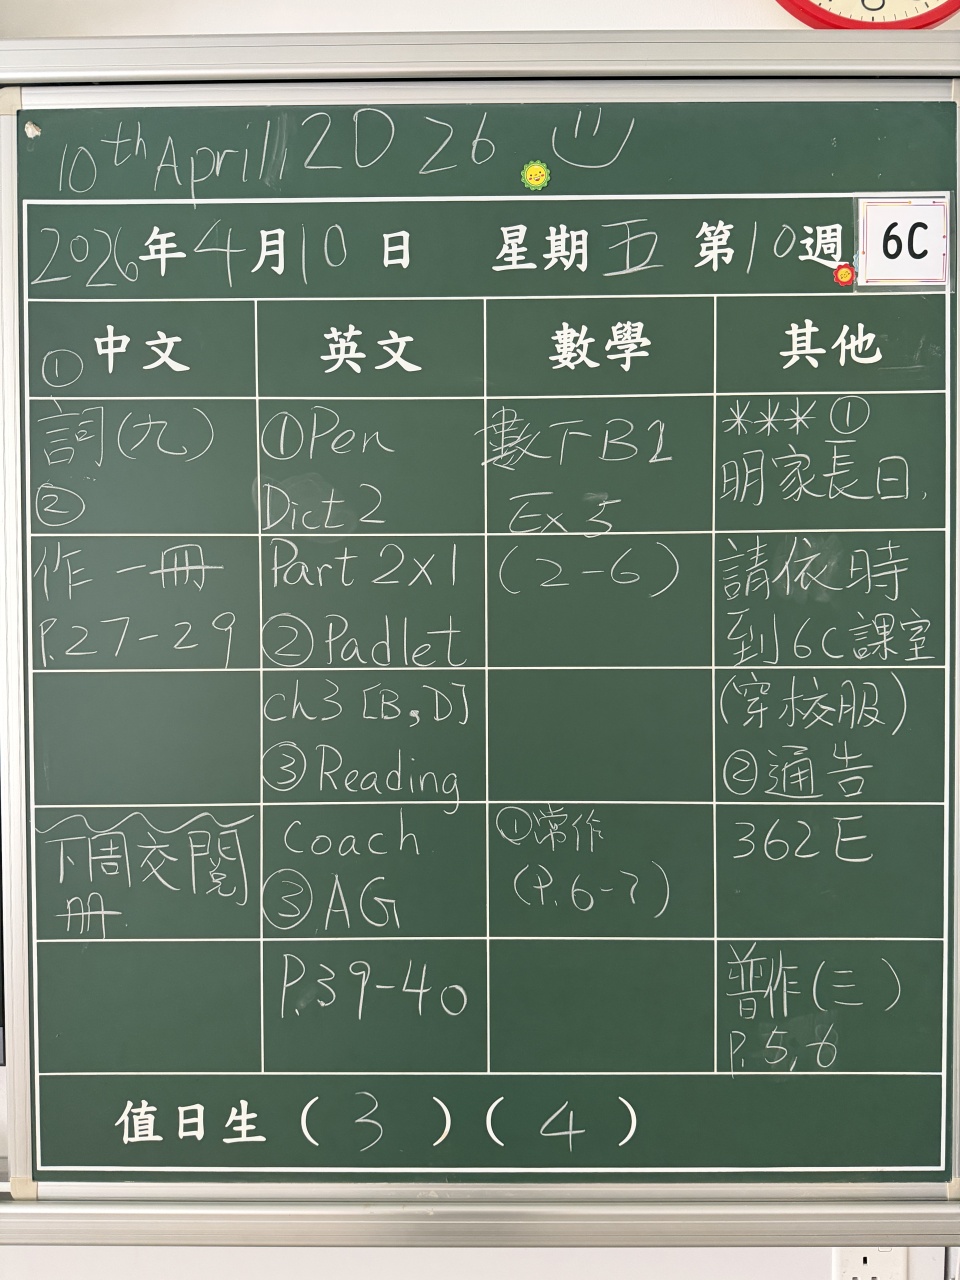 10th April 2026
2026年4月10日 星期五 第10週 6C
中文 英文 數學 其他
①
詞(九)
②
作一冊
P.27-29
下周交閱
冊
①Pen
Dict 2
Part 2x1
②Padlet
ch3 [B,D]
③Reading
Coach
③AG
P.39-40
數下B1
Ex 5
(2-6)
①常作
(P.6-7)
***①
明家長日,
請依時
到6C課室
(穿校服)
②通告
362E
普作(三)
P.5,6
值日生(3)(4)